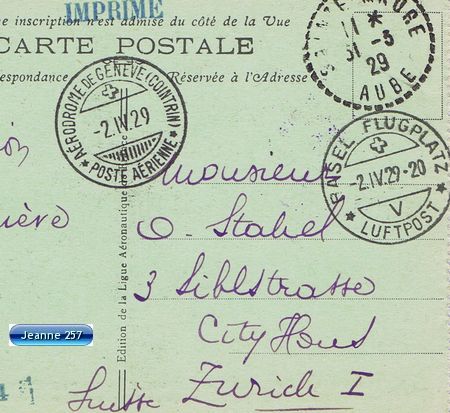 IMPRIME
une inscription n'est admise du côté de la Vue
CARTE POSTALE
Réservée à l'Adresse
11 *
31-3
29
AUBE
AERODROME DE GENEVE (COINTRIN)
-2.IV.29
* POSTE AÉRIENNE *
BASEL FLUGPLATZ
-2.IV.29-20
V
* LUFTPOST *
Monsieur
O. Stahel
3 Sihlstrasse
City Haus
Suisse Zurich I
Edition de la Ligue Aéronautique de
Jeanne 257